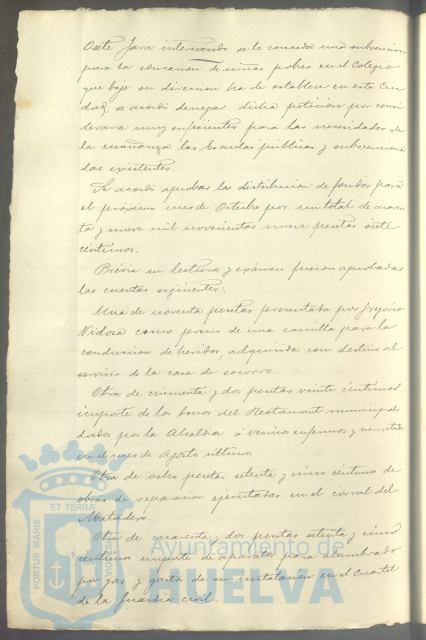 Oñate Jara interesando se le conceda una subvencion
para la educacion de niñas pobres en el Colegio
que bajo su direccion ha de establecer en esta Ciu
dad, se acordó denegar dicha peticion por consi
derarse muy suficientes para las necesidades de
la enseñanza las Escuelas públicas y subvenciona
das existentes.
Se acordó aprobar la distribucion de fondos para
el próximo mes de Octubre por un total de cuaren
ta y nueve mil novecientas nueve pesetas siete
céntimos.
Prévia su lectura y exámen fueron aprobadas
las cuentas siguientes:
Una de noventa pesetas presentada por Gregorio
como precio de una camilla para la
conduccion de heridos, adquirida con destino al
servicio de la casa de socorro.
Otra de cincuenta y dos pesetas veinte céntimos
importe de los bonos del Restaurant municipal
dados por la Alcaldia á vecinos enfermos y
en el mes de Agosto último.
Otra de ocho pesetas setenta y cinco céntimos de
obras de reparacion ejecutadas en el corral del
Matadero.
Otra de cuarenta y dos pesetas setenta y cinco
céntimos importe de aparatos para alumbrado
por gas y gastos de su instalacion en el Cuartel
de la Guardia civil.
PORTUS MARIS
ET TERRÆ
Ayuntamiento de
HUELVA